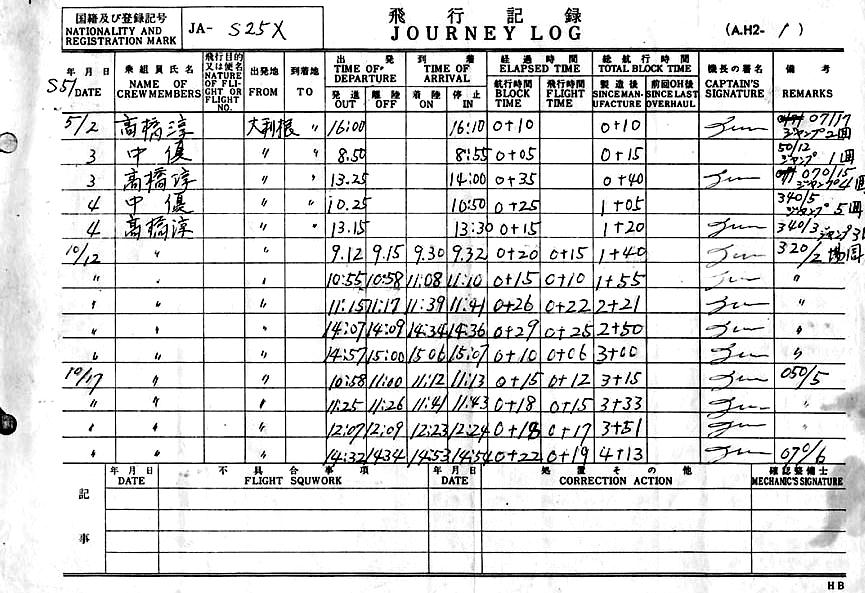 国籍及び登録記号
NATIONALITY AND
REGISTRATION MARK
JA- S25X
飛行記録
JOURNEY LOG
(A.H2- 1 )
S51
年月日
DATE
乗組員氏名
NAME OF
CREW MEMBERS
飛行目的
又は便名
NATURE
OF FLI-
GHT OR
FLIGHT
NO.
出発地
FROM
到着地
TO
出発
TIME OF
DEPARTURE
発送 OUT
離陸 OFF
到着
TIME OF
ARRIVAL
着陸 ON
停止 IN
経過時間
ELAPSED TIME
航行時間
BLOCK
TIME
飛行時間
FLIGHT
TIME
総航行時間
TOTAL BLOCK TIME
製造後
SINCE MAN-
UFACTURE
前回OH後
SINCE LAST
OVERHAUL
機長の署名
CAPTAIN'S
SIGNATURE
備考
REMARKS
5/2 高橋淳 大利根 〃 16:00 16:10 0+10 0+10 071/7 ジャンプ2回
3 中 優 〃 〃 8.50 8:55 0+05 0+15 50/12 ジャンプ 1回
3 高橋淳 〃 〃 13.25 14:00 0+35 0+40 070/15 ジャンプ4回
4 中 優 〃 〃 10.25 10:50 0+25 1+05 340/5 ジャンプ 5回
4 高橋淳 〃 〃 13.15 13:30 0+15 1+20 340/3 ジャンプ
10/12 〃 〃 9.12 9.15 9.30 9.32 0+20 0+15 1+40 320/2 場周
〃 〃 〃 10:55 10:58 11:08 11:10 0+15 0+10 1+55 〃
〃 〃 〃 11:15 11:17 11:39 11:41 0+26 0+22 2+21 〃
〃 〃 〃 14:07 14:09 14:34 14:36 0+29 0+25 2+50 〃
〃 〃 〃 14:57 15:00 15:06 15:07 0+10 0+06 3+00 〃
10/17 〃 〃 10:58 11:00 11:12 11:13 0+15 0+12 3+15 050/5
〃 〃 〃 11:25 11:26 11:41 11:43 0+18 0+15 3+33 〃
〃 〃 〃 12:07 12:09 12:23 12:24 0+18 0+17 3+51 〃
〃 〃 〃 14:32 14:34 14:53 14:54 0+22 0+19 4+13 070/6
記事
年月日
DATE
不具合事項
FLIGHT SQUWORK
年月日
DATE
処置その他
CORRECTION ACTION
確認整備士
MECHANIC'S SIGNATURE
HB